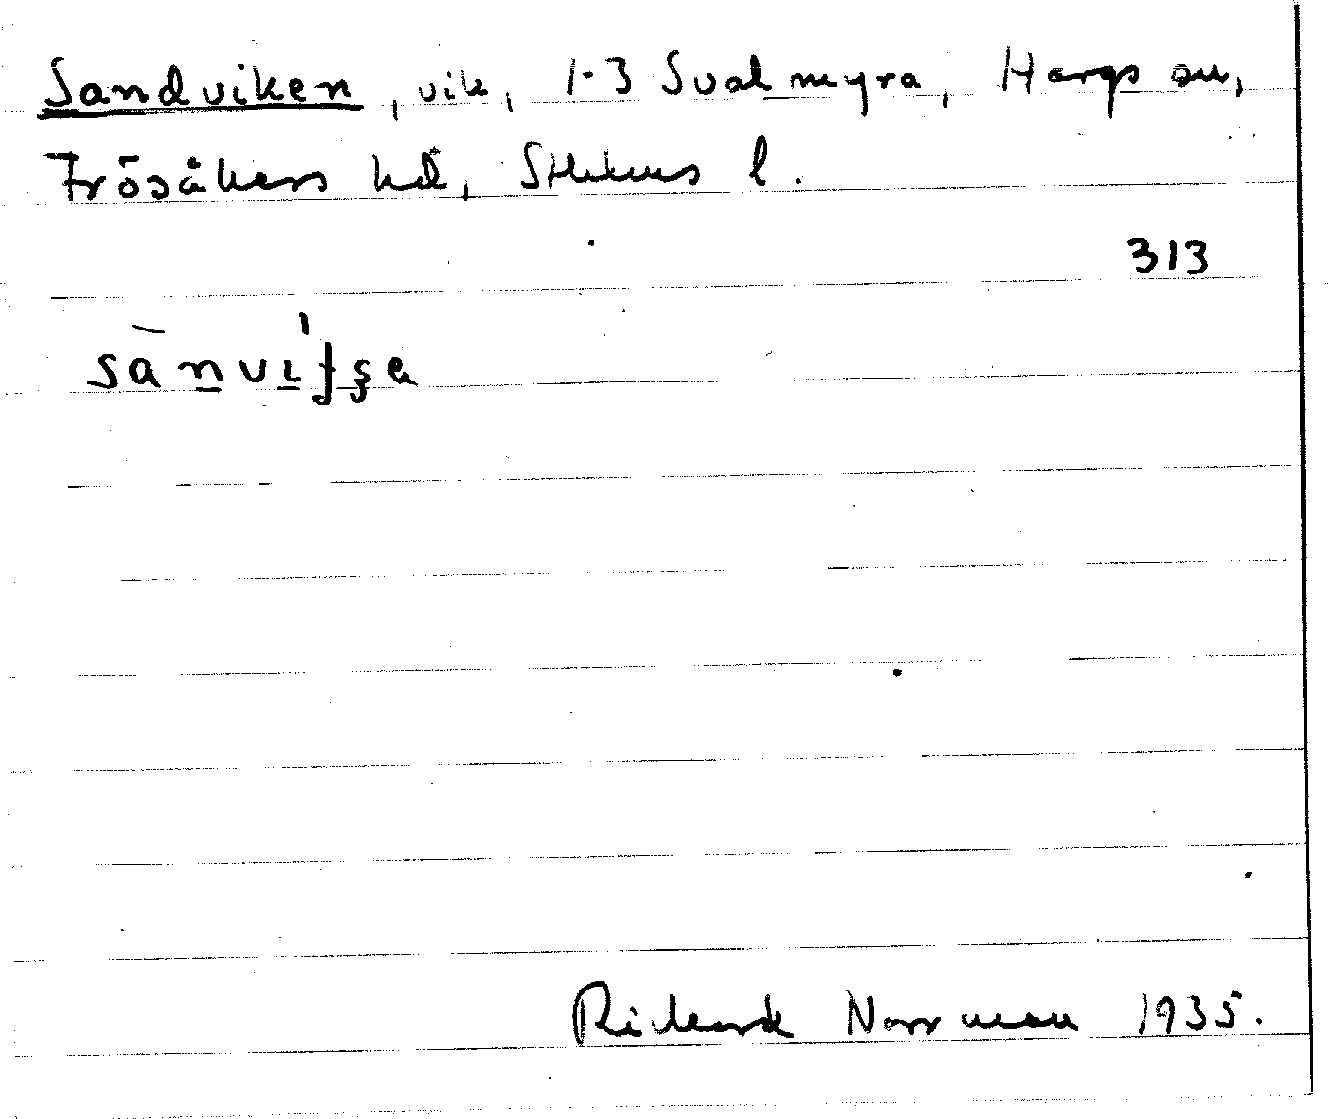 Sandviken, vik, 1-3 Svalmyra, Hargs sn,
Frösåkers hd, Sthlms l.
313
Rickard Norrman 1935.